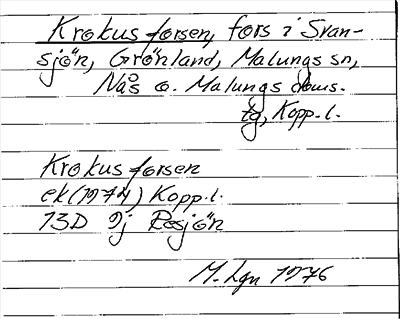 Krokusforsen, fors i Svan-
sjön, Grönland, Malungs sn,
Nås o. Malungs doms.
tg, Kopp. l.
Krokusforsen
ek (1974) Kopp. l.
13D 9j Rösjön
M. Lgn 1976